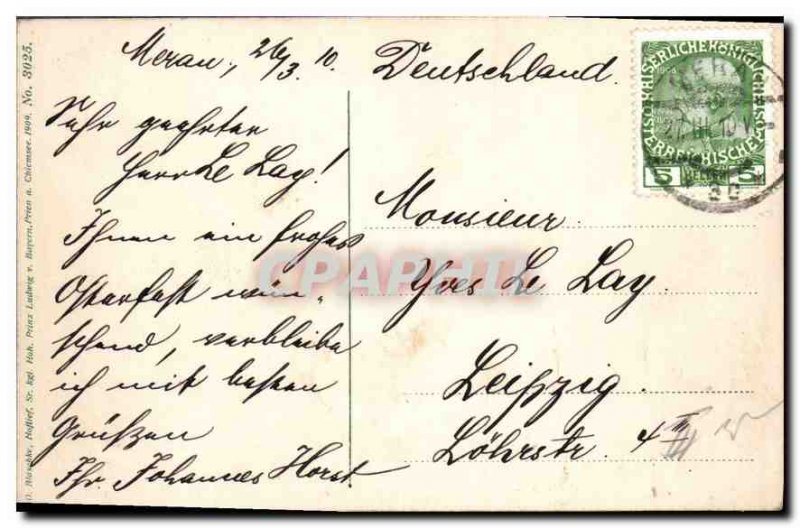 Meran, 26/3. 10.
Sehr geehrter
Herr Le Lay!
Ihnen ein frohes
Osterfest wün-
schend, verbleibe
ich mit besten
Grüßen
Ihr Johannes Horst.
Deutschland.
Monsieur
Yves Le Lay
Leipzig.
Löhrstr. 4 II
III
KAISERLICHE KÖNIGLICHE
ÖSTERREICHISCHE
5 HELLER 5
MERAN
CPAPHIL
Hoflief. Sr. kgl. Hoh. Prinz Ludwig v. Bayern, Prien a. Chiemsee. 1909. No. 3025.